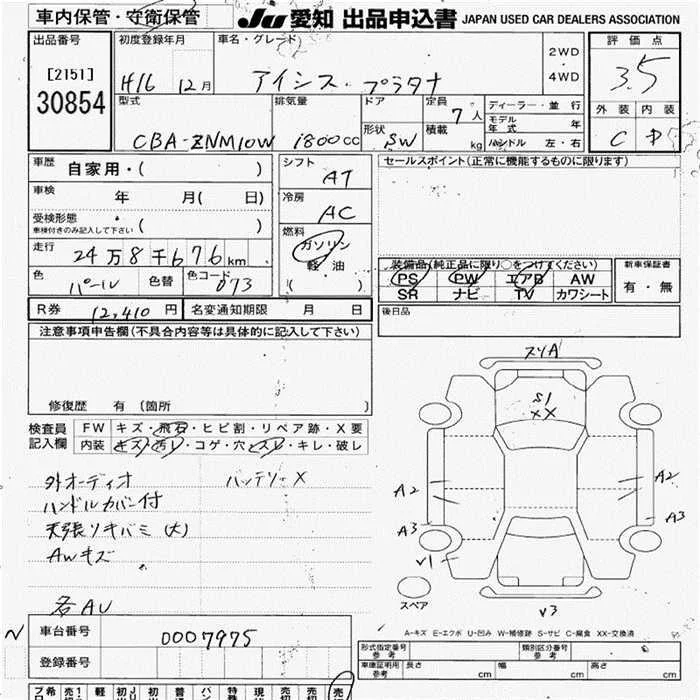 車内保管・守衛保管
JU 愛知 出品申込書 JAPAN USED CAR DEALERS ASSOCIATION
出品番号 初度登録年月 車名・グレード 2WD 4WD 評価点
[2151]
30854
H16 12月 アイシス・プラタナ 3.5
型式 排気量 ドア 形状 定員 積載 ディーラー・並行 外装 内装
CBA-ZNM10W 1800cc SW 7人 kg モデル年式 年 ハンドル 左・右 C D
車歴 自家用・( )
シフト AT
セールスポイント(正常に機能するものに限ります)
車検 年 月( 日)
冷房 AC
受検形態 車検付きのみ記入して下さい ( )
燃料 ガソリン 軽油 ( )
走行 24万8千676km
装備品(純正品に限り○をつけてください) 新車保証書
色 パール 色替 色コード 073
PS PW エアB AW 有・無
SR ナビ TV カワシート
R券 12,410円 名変通知期限 月 日
後日品
注意事項申告欄(不具合内容等は具体的に記入して下さい)
修復歴 有(箇所 )
スリA
S1
XX
検査員記入欄 FW キズ・飛石・ヒビ割・リペア跡・X要
内装 キズ・汚レ・コゲ・穴・スレ・キレ・破レ
外オーディオ バッテリーX
ハンドルカバー付
天張ソキバミ(大)
AWキズ
各AU
A2 A2
A3 A3
V1
スペア V3
A-キズ E-エクボ U-凹み W-補修跡 S-サビ C-腐食 XX-交換済
N 車台番号 0007975
登録番号
形式指定番号 参考 類別区分番号 参考
車庫証明用 参考 長さ cm 幅 cm 高さ cm